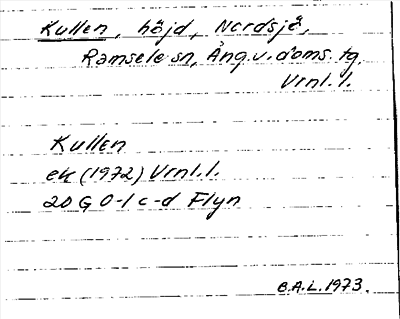 Kullen, höjd, Nordsjö,
Ramsele sn, Ång.v. doms. tg.
Vrnl. l.
Kullen
ek (1972) Vrnl. l.
20 G 0-1 c-d Flyn
B.A.L. 1973.